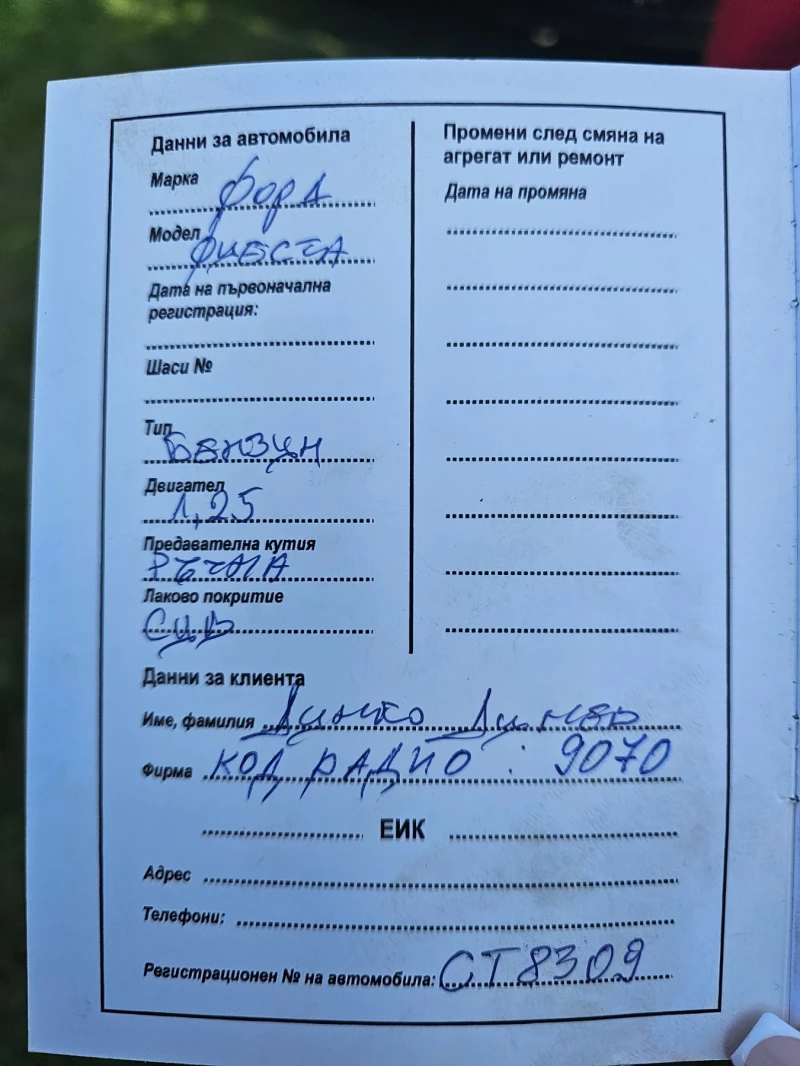 Данни за автомобила
Марка Форд
Модел Фиеста
Дата на първоначална
регистрация:
Шаси №
Тип Бензин
Двигател 1,25
Предавателна кутия
Ръчна
Лаково покритие
Сив
Промени след смяна на
агрегат или ремонт
Дата на промяна
Данни за клиента
Име, фамилия Динко Динев
Фирма КОД РАДИО : 9070
ЕИК
Адрес
Телефони:
Регистрационен № на автомобила: СТ8309